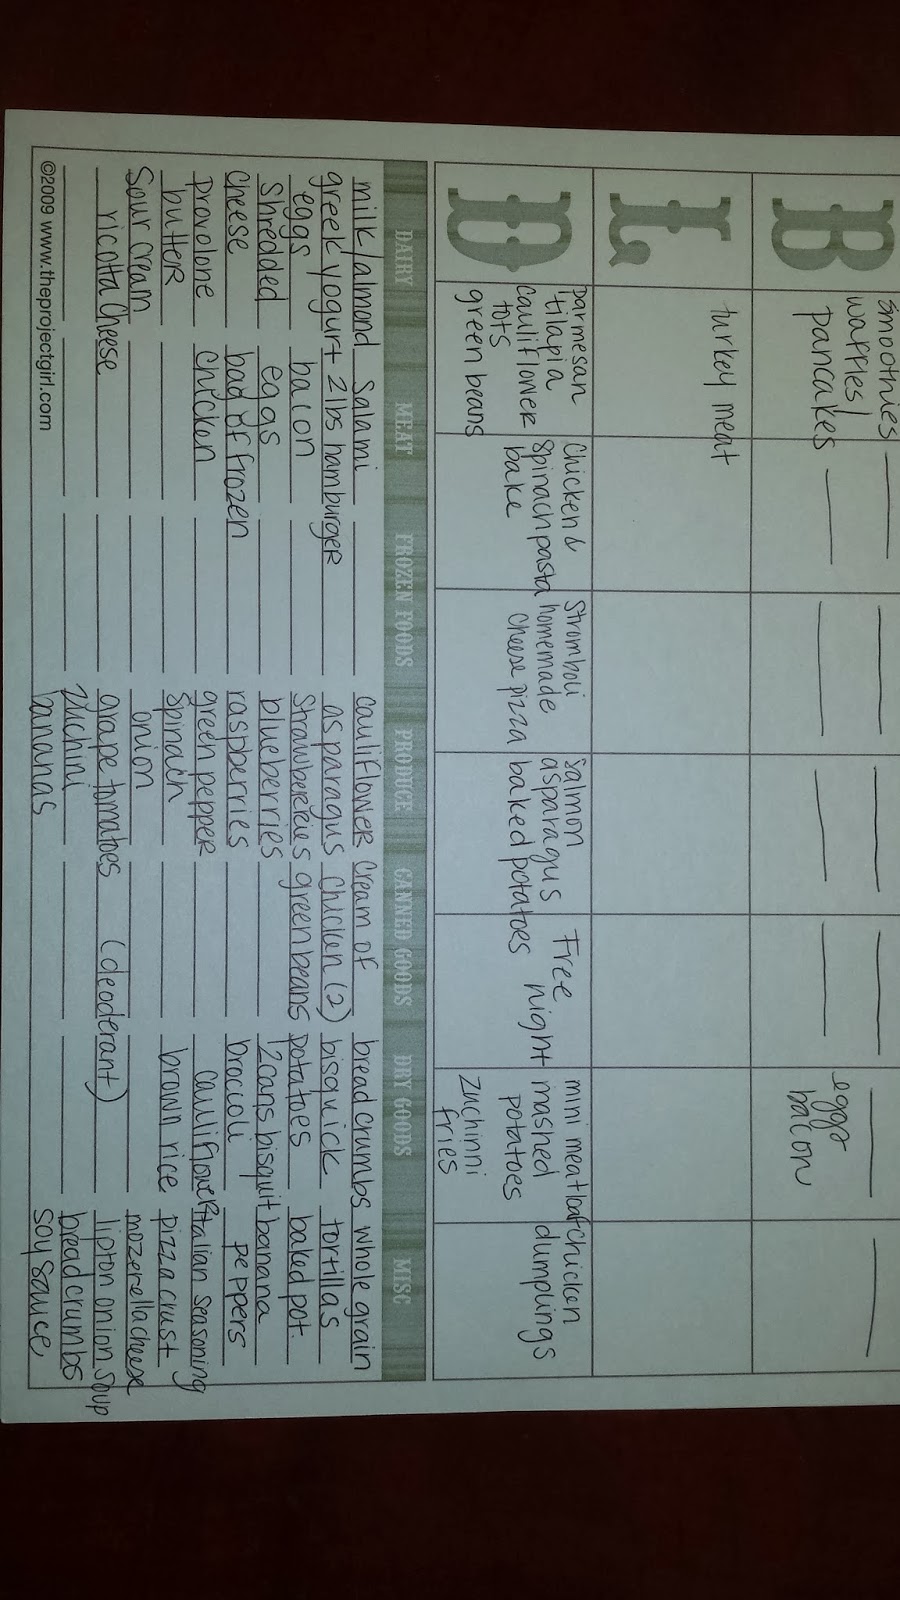 B
smoothies
waffles/
pancakes
eggs
bacon
L
turkey meat
D
parmesan
tilapia
cauliflower
tots
green beans
Chicken &
spinach pasta
bake
Stromboli
homemade
cheese pizza
salmon
asparagus
baked potatoes
Free
night
mini meatloaf
mashed
potatoes
zuchinni
fries
chicken
dumplings
DAIRY MEAT FROZEN FOODS PRODUCE CANNED GOODS DRY GOODS MISC
milk/almond Salami cauliflower cream of breadcrumbs whole grain
greek yogurt 2 lbs hamburger asparagus chicken (2) bisquick tortillas
eggs bacon strawberries green beans potatoes baked pot.
Shredded eggs blueberries 2 cans bisquit banana
cheese bad of frozen raspberries brocoli peppers
provolone chicken green pepper cauliflower italian seasoning
butter spinach brown rice pizza crust
Sour cream onion mozerella cheese
ricotta cheese grape tomatoes (deoderant) lipton onion soup
zuchini bread crumbs
bananas soy sauce
©2009 www.theprojectgirl.com